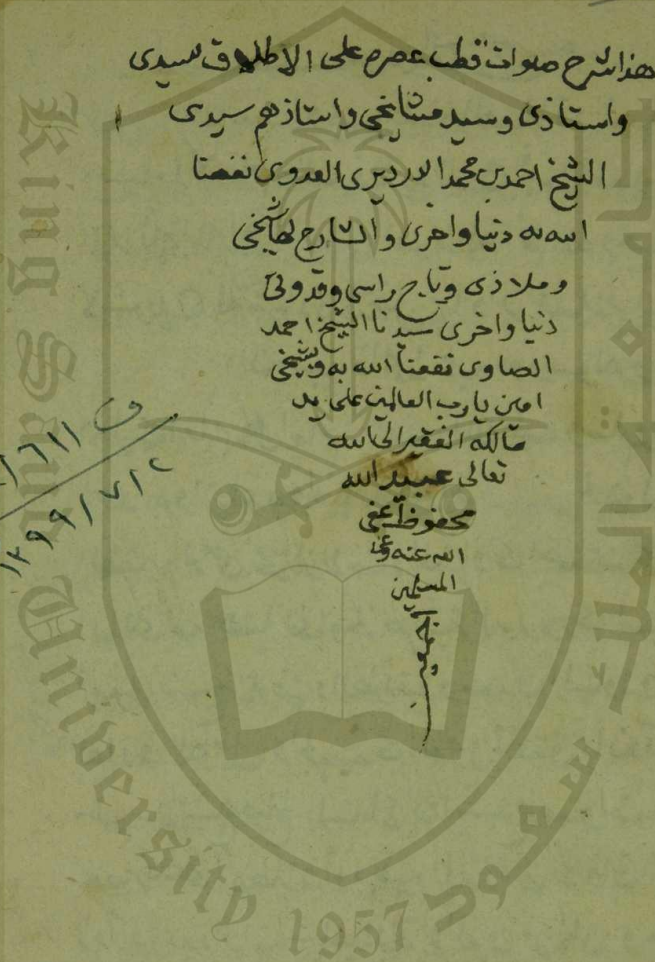 هذا شرح صلوات قطب عصره على الاطلاق سيدى
واستاذى وسيد مشايخى واستاذهم سيدى
الشيخ احمد بن محمد الدرديرى العدوى نفعنا
الله به دنيا واخرى والشارح لها شيخى
وملاذى وتاج راسى وقدوتى
دنيا واخرى سيدنا الشيخ احمد
الصاوى نفعنا الله به وبشيخى
امين يارب العالمين على يد
مالكه الفقير الى الله
تعالى عبد الله
محفوظ عفى
الله عنه وعن
المسلمين
اجمعين
ف ١٦١١
١٣٩٩/٧/٢
King Saud University 1957
جامعة الملك سعود